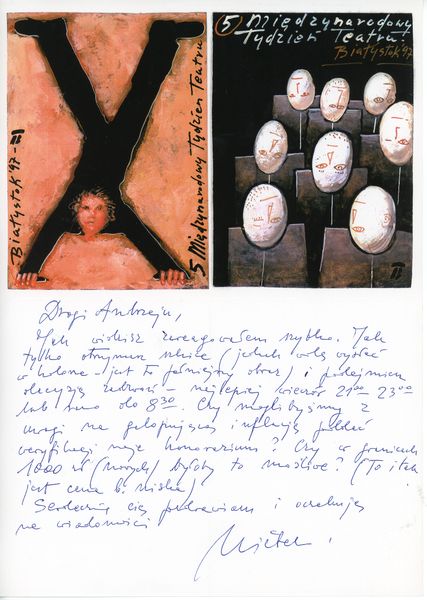 Białystok '97
5 Międzynarodowy Tydzień Teatru
5 Międzynarodowy
Tydzień Teatru!
Białystok '97
Drogi Andrzeju,
Jak widzisz zareagowałem szybko. Jak
tylko otrzymasz szkice (jednak wolę wysłać
w kolorze - jest to pełniejszy obraz) i podejmiesz
decyzję zadzwoń - najlepiej wieczór 21⁰⁰ - 23⁰⁰
lub rano do 8³⁰. Czy moglibyśmy z
uwagi na galopującą inflację
weryfikacji moje honorarium? Czy w granicach
1000 zł (nowych) byłoby to możliwe? (To i tak
jest cena b. niska)
Serdecznie cię pozdrawiam i oczekuję
na wiadomości